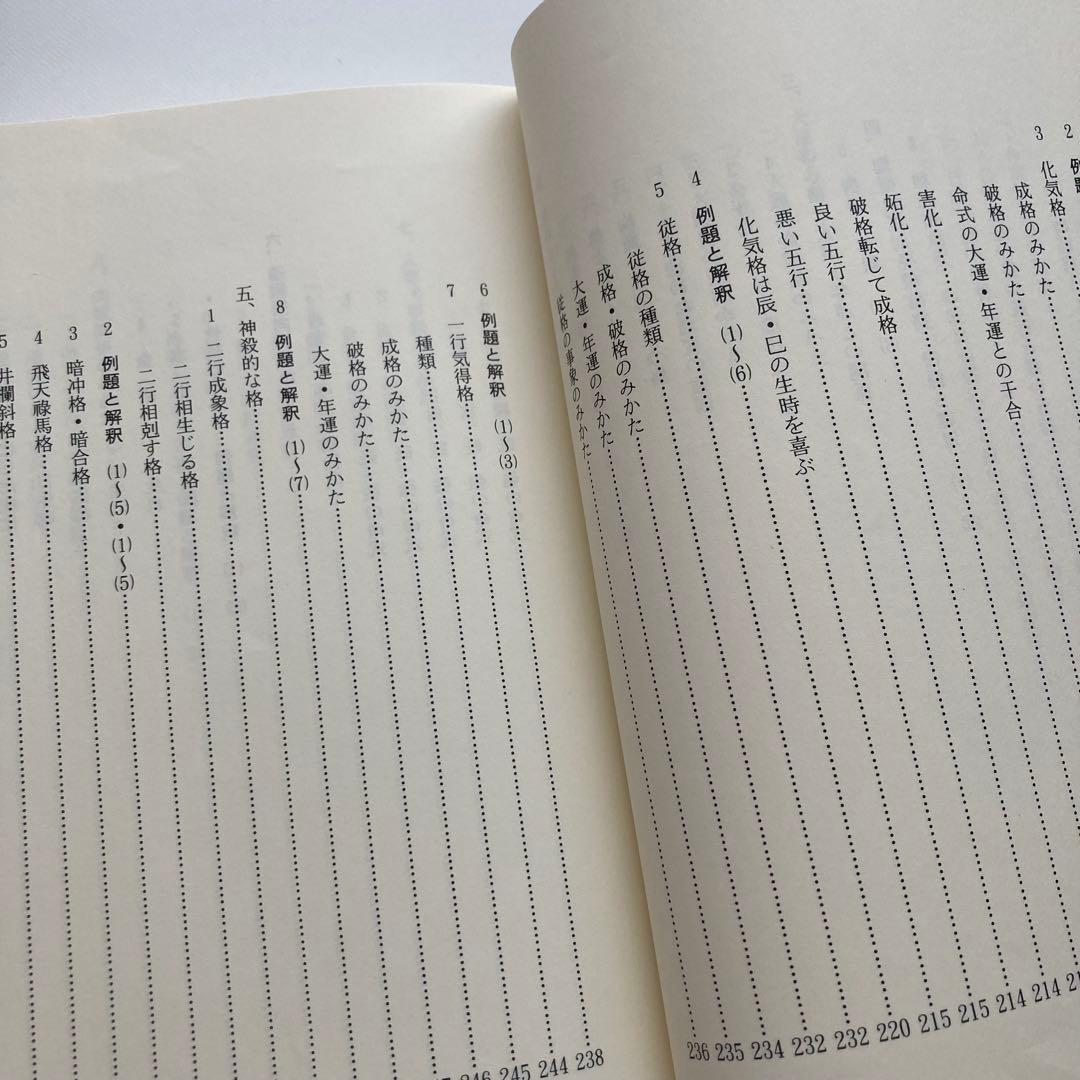 2 例題
3 化気格
成格のみかた
破格のみかた
命式の大運・年運との干合
害化
妬化
破格転じて成格 214
良い五行 214
悪い五行 215
化気格は辰・巳の生時を喜ぶ 215
4 例題と解釈 (1)〜(6) 220
5 従格 232
従格の種類 232
成格・破格のみかた 234
大運・年運のみかた 235
従格の事象のみかた 236
6 例題と解釈 (1)〜(3) 238
7 一行気得格 244
種類 245
成格のみかた 246
破格のみかた
大運・年運のみかた
8 例題と解釈 (1)〜(7)
五、神殺的な格
1 二行成象格
二行相生じる格
二行相剋す格
2 例題と解釈 (1)〜(5)・(1)〜(5)
3 暗冲格・暗合格
4 飛天祿馬格
5 井欄斜格